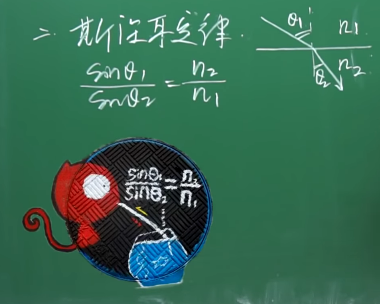 二、斯涅耳定律.
sinθ₁/sinθ₂ = n₂/n₁
θ₁ n₁
θ₂ n₂
sinθ₁/sinθ₂ = n₂/n₁